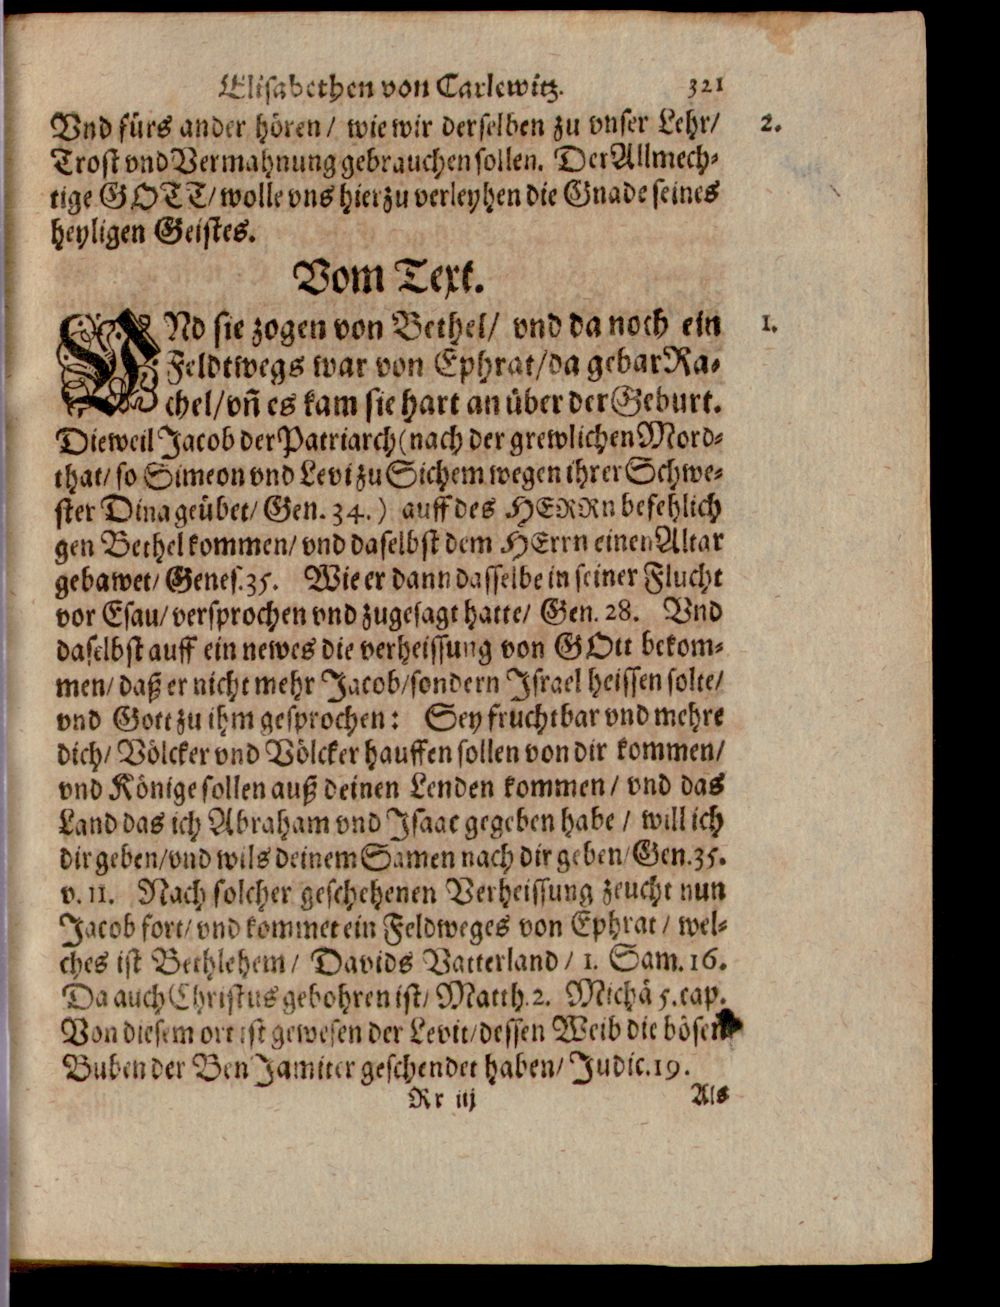 Elisabethen von Carlewitz. 321
Vnd fürs ander hören / wie wir derselben zu vnser Lehr/ 2.
Trost vnd Vermahnung gebrauchen sollen. Der Allmech-
tige GOTT/ wolle vns hierzu verleyhen die Gnade seines
heyligen Geistes.
Vom Text.
VNd sie zogen von Bethel/ vnd da noch ein 1.
Feldtwegs war von Ephrat/da gebar Ra-
chel/vñ es kam sie hart an über der Geburt.
Dieweil Jacob der Patriarch (nach der grewlichen Mord-
that/ so Simeon vnd Levi zu Sichem wegen ihrer Schwe-
ster Dina geübet/ Gen. 34.) auff des HERRn befehlich
gen Bethel kommen/ vnd daselbst dem HErrn einen Altar
gebawet/ Genes. 35. Wie er dann dasselbe in seiner Flucht
vor Esau/ versprochen vnd zugesagt hatte/ Gen. 28. Vnd
daselbst auff ein newes die verheissung von GOtt bekom-
men/ daß er nicht mehr Jacob/sondern Israel heissen solte/
vnd Gott zu ihm gesprochen: Sey fruchtbar vnd mehre
dich/ Völcker vnd Völcker hauffen sollen von dir kommen/
vnd Könige sollen auß deinen Lenden kommen / vnd das
Land das ich Abraham vnd Isaac gegeben habe / will ich
dir geben/vnd wils deinem Samen nach dir geben/Gen.35.
v. 11. Nach solcher geschehenen Verheissung zeucht nun
Jacob fort/ vnd kommet ein Feldweges von Ephrat / wel-
ches ist Bethlehem / Davids Vatterland / 1. Sam. 16.
Da auch Christus gebohren ist/ Matth. 2. Michä 5. cap.
Von diesem ort ist gewesen der Levit/dessen Weib die bösen
Buben der Ben Jamiter geschendet haben/ Judic. 19.
Rr iij Als